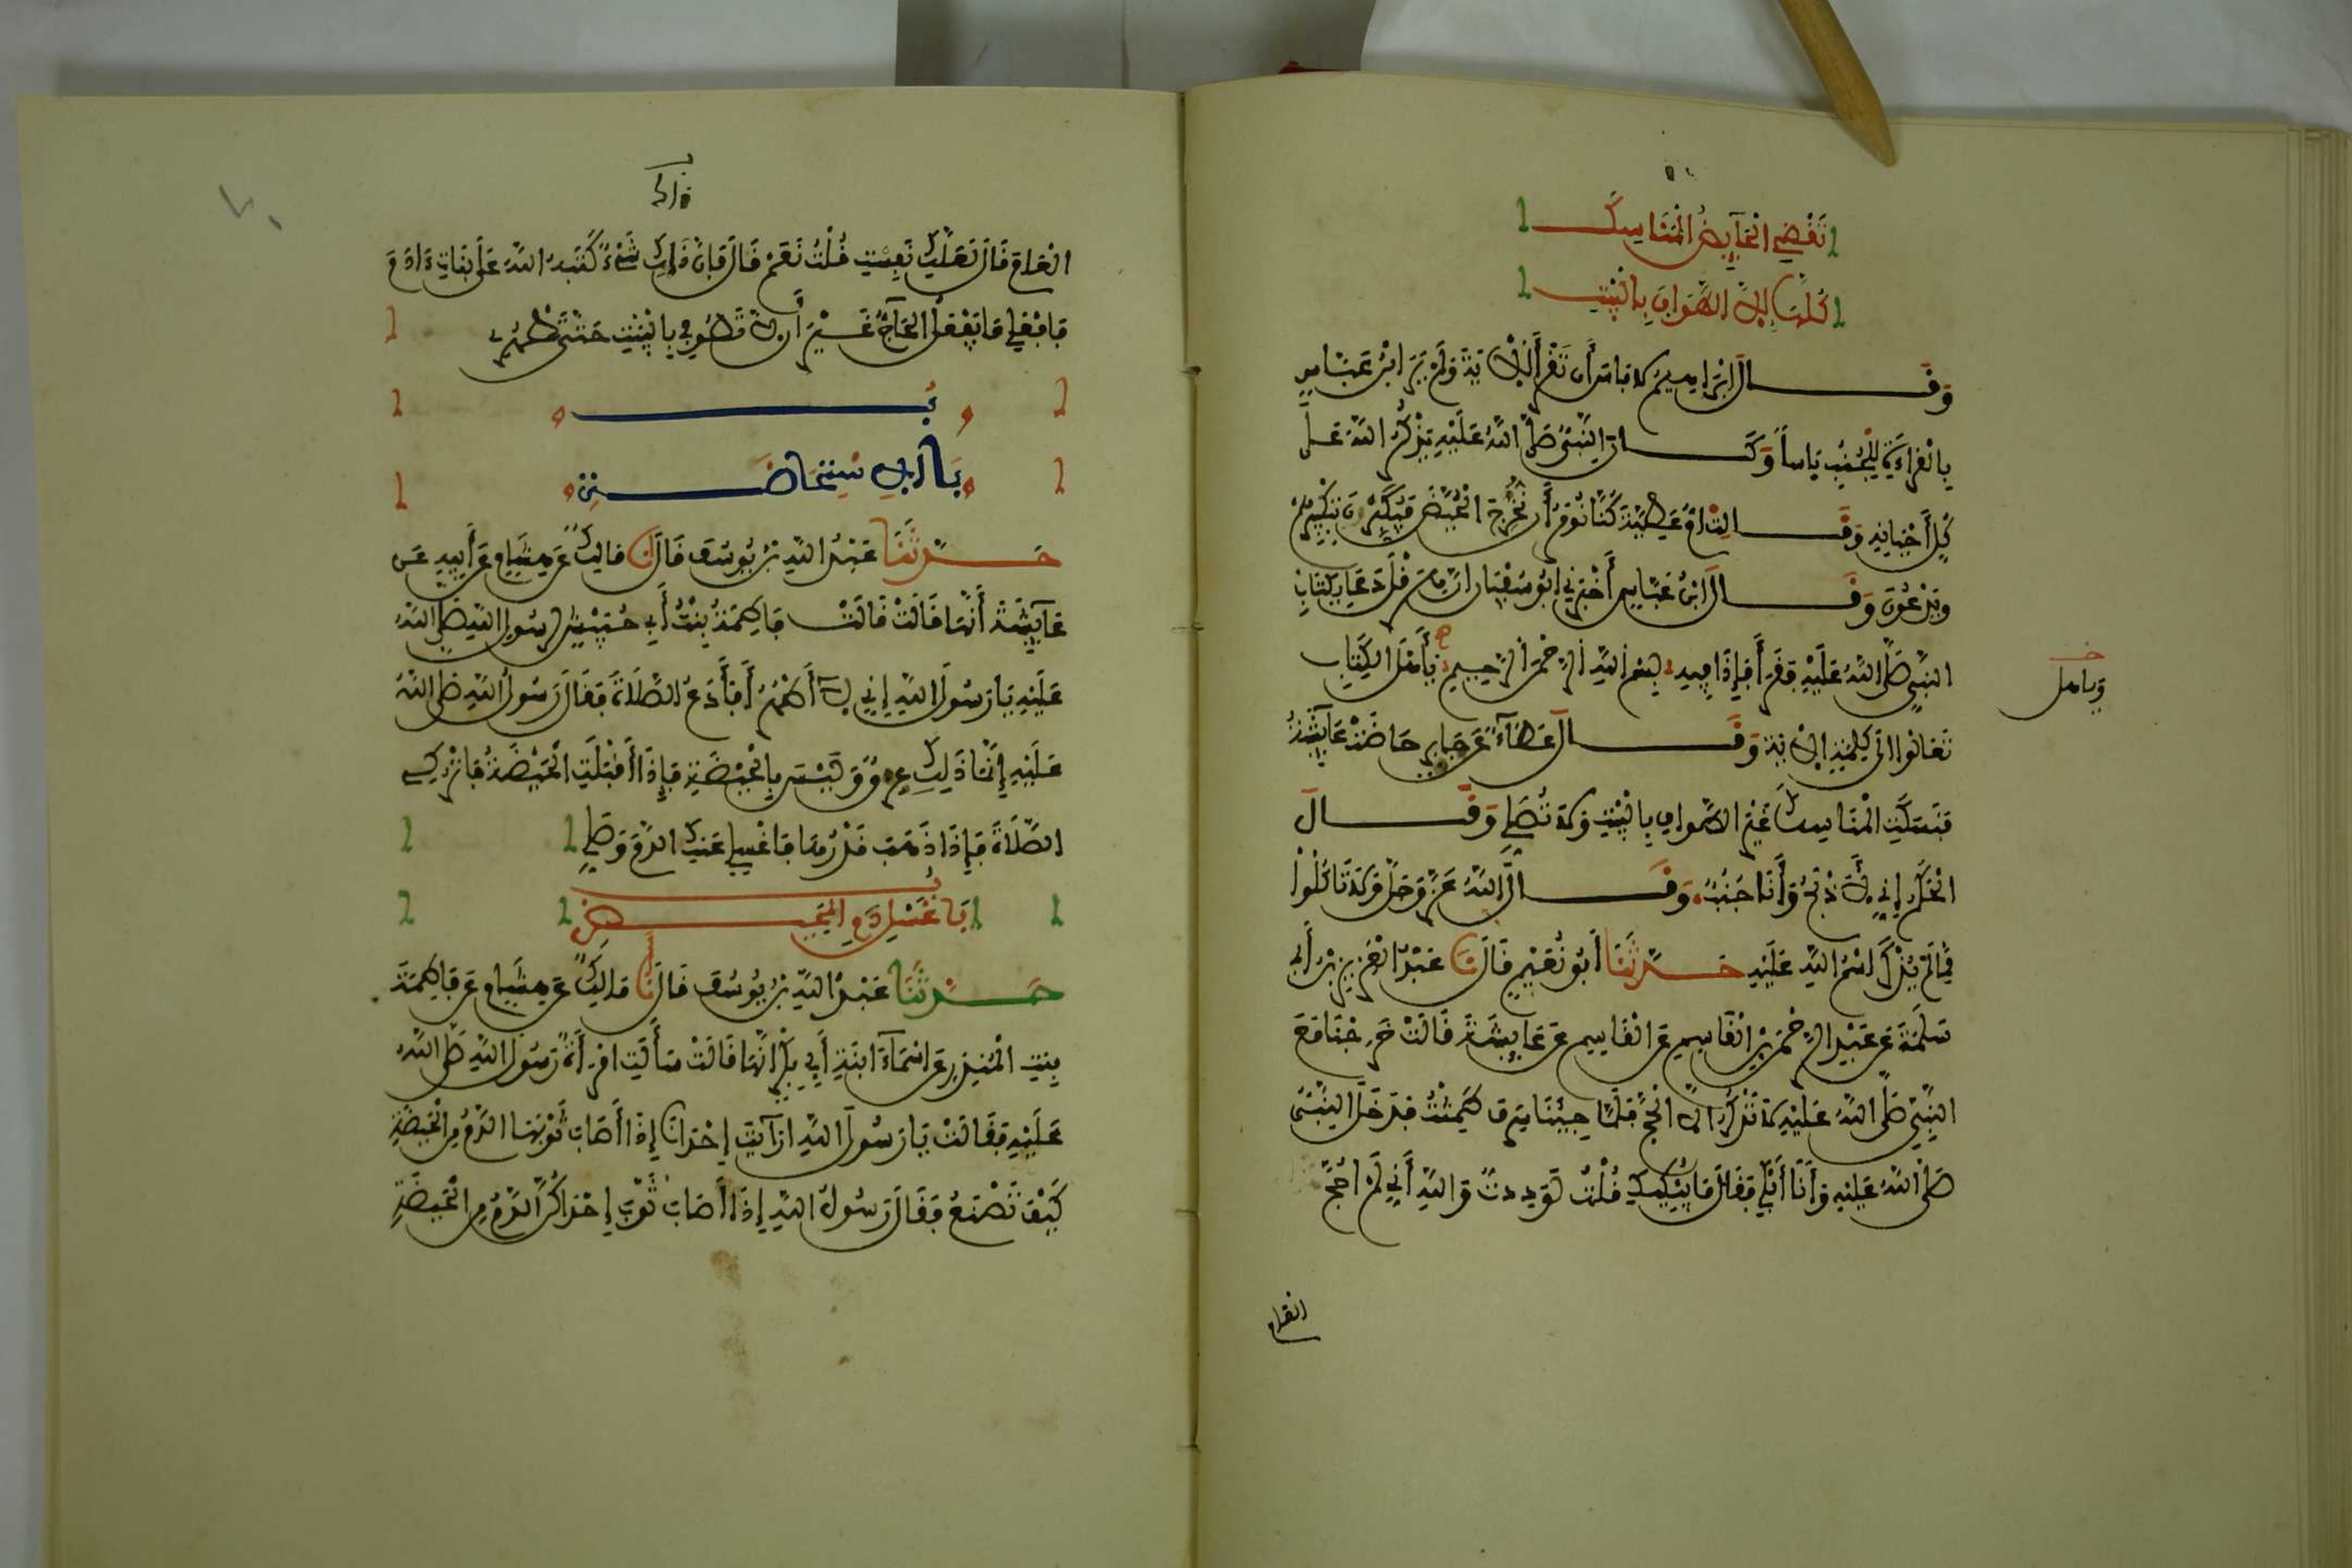 تَقْضِي الْحَآيِضُ الْمَنَاسِكَ
كُلَّهَا إِلاَّ الطَّوَافَ بِالْبَيْتِ
وَقَالَ إِبْرَاهِيمُ لاَ بَاسَ أَن تَقْرَأَ الآيَةَ وَلَمْ يَرَ ابْنُ عَبَّاسٍ
بِالْقِرَاءَةِ لِلْجُنُبِ بَاساً وَكَانَ النَّبِيُّ صَلَّى اللَّهُ عَلَيْهِ يَذْكُرُ اللَّهَ عَلَى
كُلِّ أَحْيَانِهِ وَقَالَتْ أُمُّ عَطِيَّةَ كُنَّا نُؤْمَرُ أَن نُّخْرِجَ الْحُيَّضَ فَيُكَبِّرْنَ بِتَكْبِيرِهِمْ
وَيَدْعُونَ وَقَالَ ابْنُ عَبَّاسٍ أَخْبَرَنِي أَبُو سُفْيَان أنَّ هِرَقْلَ دَعَا بِكِتَابِ
النَّبِيِّ صَلَّى اللَّهُ عَلَيْهِ فَقَرَأَ فَإِذَا فِيهِ بِسْمِ اللَّهِ الرَّحْمَنِ الرَّحِيمِ يَأَهْلَ الْكِتَابِ
وَيَاهل
تَعَالَوْا إِلَى كَلِمَةٍ الآيَةَ وَقَالَ عَطَآءٌ عَن جَابِرٍ حَاضَتْ عَآيِشَةُ
فَنَسَكَتِ الْمَنَاسِكَ غَيْرَ الطَّوَافِ بِالْبَيْتِ وَلاَ تُصَلِّي وَقَالَ
الْحَكَمُ إِنِّي لأَذْبَحُ وَأَنَا جُنُبٌ وَقَالَ اللَّهُ عَزَّ وَجَلَّ وَلاَ تَاكُلُوا
مِمَّا لَمْ يُذْكَرِ اسْمُ اللَّهِ عَلَيْهِ حَدَّثَنَا أَبُو نُعَيْمٍ قَالَ نَا عَبْدُ الْعَزِيزِ بْنُ أَبِي
سَلَمَةَ عَن عَبْدِ الرَّحْمَنِ بْنِ الْقَاسِمِ عَنِ الْقَاسِمِ عَن عَايِشَةَ قَالَتْ خَرَجْنَا مَعَ
النَّبِيِّ صَلَّى اللَّهُ عَلَيْهِ لاَ نَذْكُرُ إِلاَّ الْحَجَّ فَلَمَّا جِئْنَا سَرِفَ طَمِثْتُ فَدَخَلَ النَّبِيُّ
صَلَّى اللَّهُ عَلَيْهِ وَأَنَا أَبْكِي فَقَالَ مَا يُبْكِيكِ قُلْتُ لَوَدِدتُّ وَاللَّهِ أَنِّي لَمْ أَحُجَّ
العام
الْعَامَ قَالَ لَعَلَّكِ نَفِسْتِ قُلْتُ نَعَمْ قَالَ فَإِنَّ ذَلِكِ شَيْءٌ كَتَبَهُ اللَّهُ عَلَى بَنَاتِ ءَادَمَ
فَافْعَلِي مَا يَفْعَلُ الْحَآجُّ غَيْرَ أَن لاَّ تَطُوفِي بِالْبَيْتِ حَتَّى تَطْهُرِي
بَابُ الاِسْتِحَاضَةِ
حَدَّثَنَا عَبْدُ اللَّهِ بْنُ يُوسُفَ قَالَ نَا مَالِكٌ عَن هِشَامٍ عَن أَبِيهِ عَن
عَآيِشَةَ أَنَّهَا قَالَتْ قَالَتْ فَاطِمَةُ بِنْتُ أَبِي حُبَيْشٍ لِرَسُولِ اللَّهِ صَلَّى اللَّهُ
عَلَيْهِ يَا رَسُولَ اللَّهِ إِنِّي لآ أَطْهُرُ أَفَأَدَعُ الصَّلاَةَ فَقَالَ رَسُولُ اللَّهِ صَلَّى اللَّهُ
عَلَيْهِ إِنَّمَا ذَلِكِ عِرْقٌ وَلَيْسَ بِالْحَيْضَةِ فَإِذَا أَقْبَلَتِ الْحَيْضَةُ فَاتْرُكِي
الصَّلاَةَ فَإِذَا ذَهَبَ قَدْرُهَا فَاغْسِلِي عَنكِ الدَّمَ وَصَلِّي
بَابُ غَسْلِ دَمِ الْمَحِيضِ
حَدَّثَنَا عَبْدُ اللَّهِ بْنُ يُوسُفَ قَالَ نَا مَالِكٌ عَن هِشَامٍ عَن فَاطِمَةَ
بِنتِ الْمُنذِرِ عَن اسْمَآءَ ابْنَةِ أَبِي بَكْرٍ أَنَّهَا قَالَتْ سَأَلَتِ امْرَأَةٌ رَسُولَ اللَّهِ صَلَّى اللَّهُ
عَلَيْهِ فَقَالَتْ يَا رَسُولَ اللَّهِ ارَآيْتَ إِحْدَانَا إِذَا أَصَابَ ثَوْبَهَا الدَّمُ مِنَ الْحَيْضَةِ
كَيْفَ تَصْنَعُ فَقَالَ رَسُولُ اللَّهِ إِذَا أَصَابَ ثَوْبَ إِحْدَاكُنَّ الدَّمُ مِنَ الْحَيْضَةِ